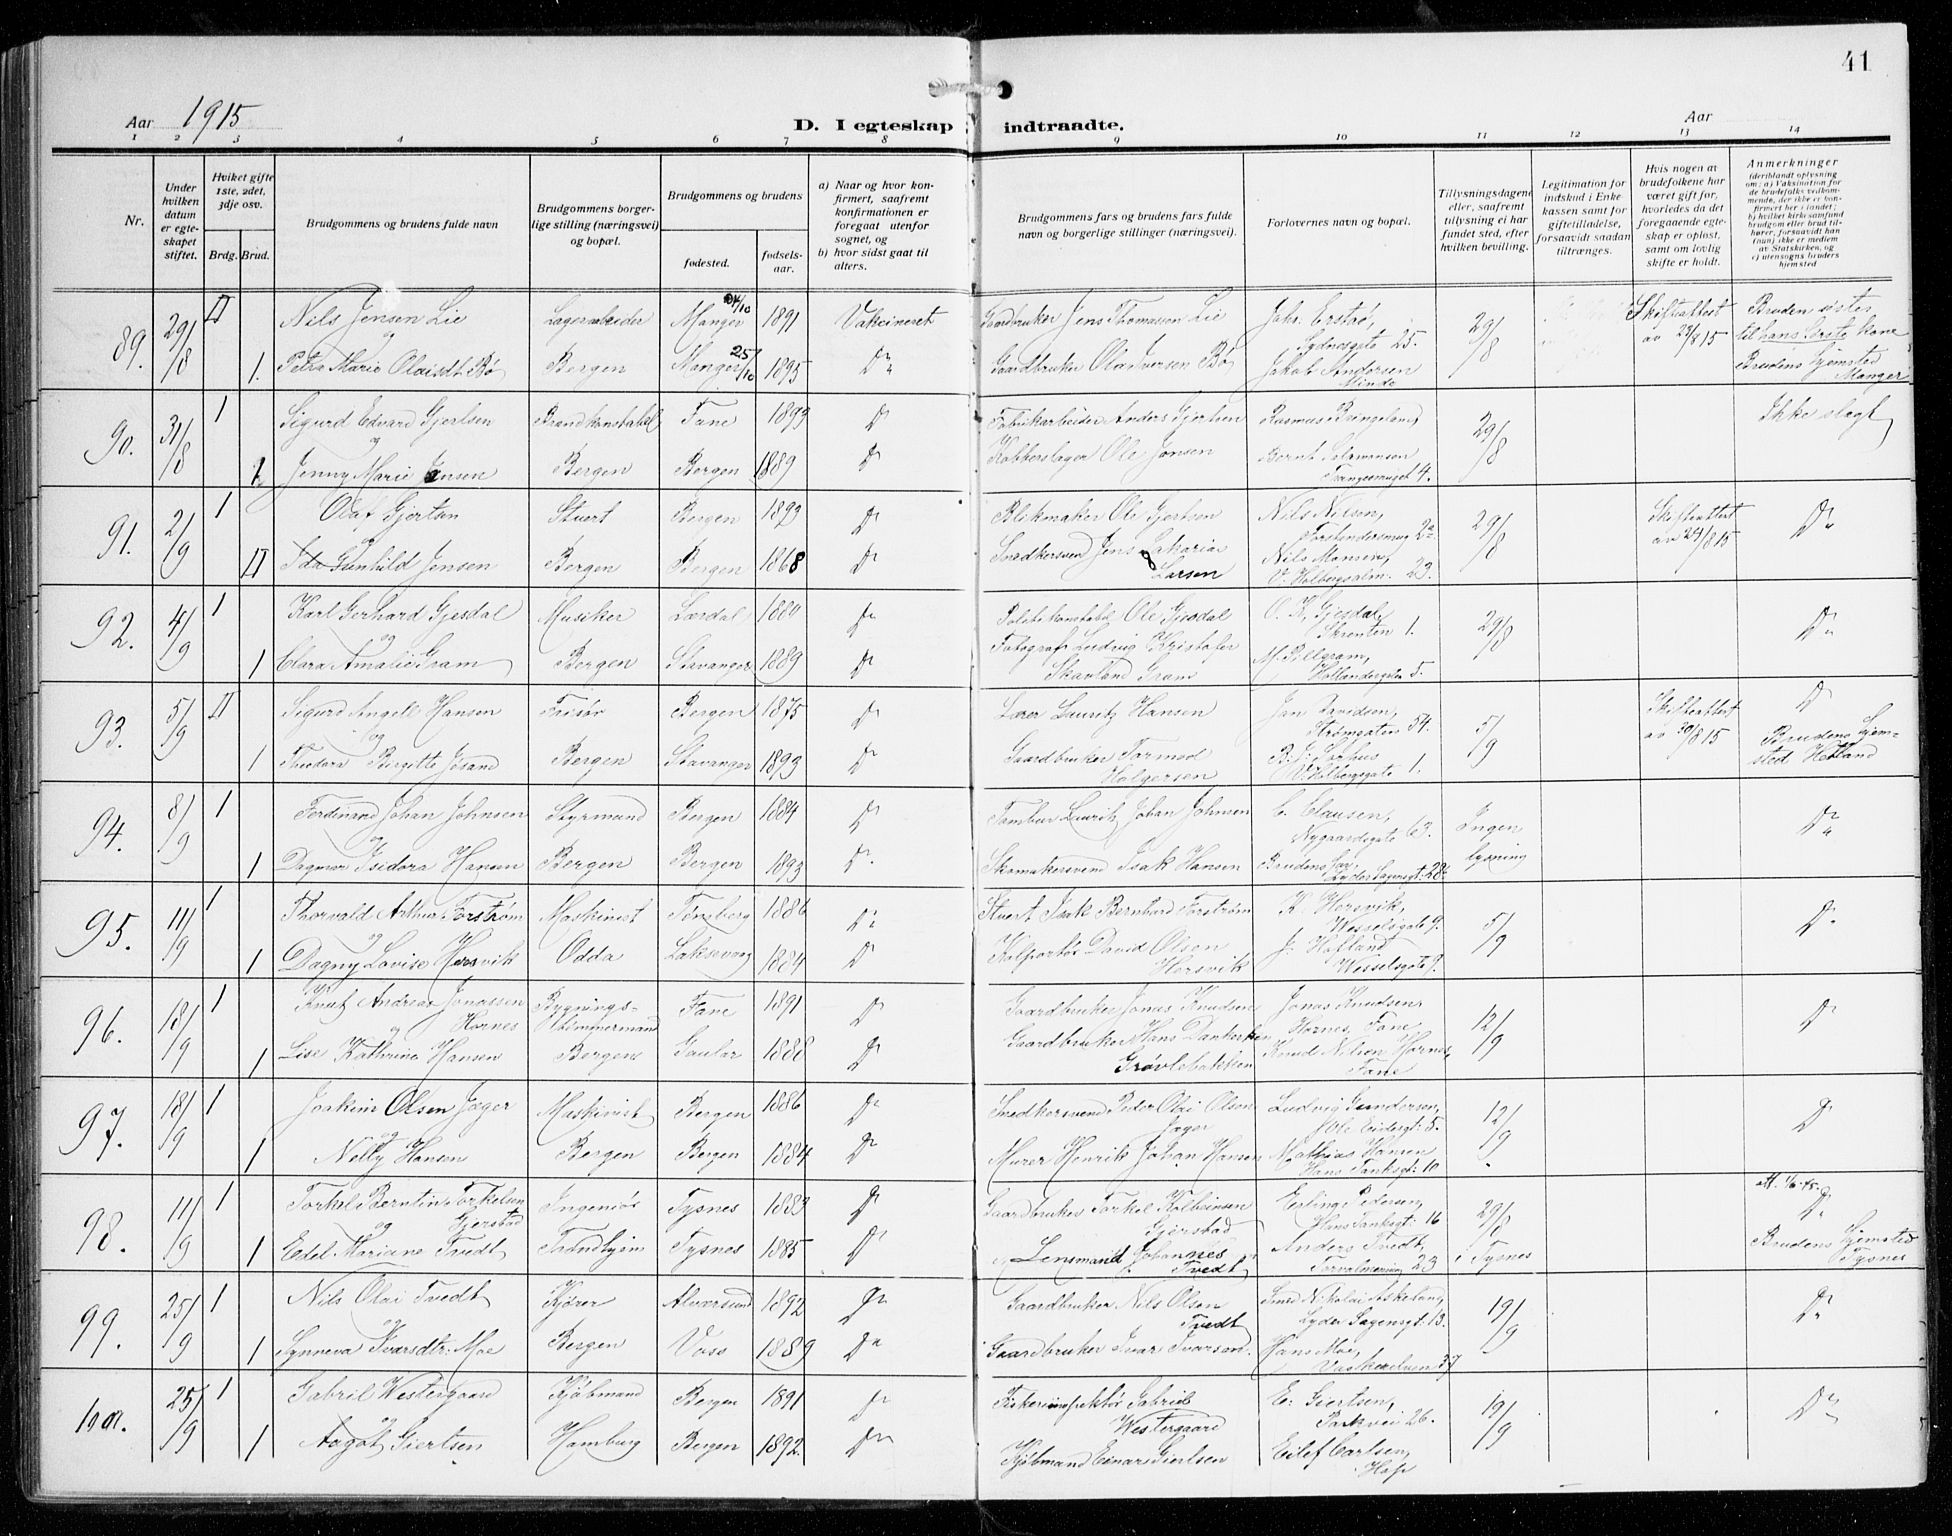 41
Aar 1915
D. I egteskap indtraadte.
Aar
1 2 3 4 5 6 7 8 9 10 11 12 13 14
Nr.
Under hvilken datum er egteskapet stiftet.
Hviket gifte 1ste, 2det, 3dje osv.
Brdg. Brud.
Brudgommens og brudens fulde navn
Brudgommens borgerlige stilling (næringsvei) og bopæl.
Brudgommens og brudens
fødested.
fødselsaar.
a) Naar og hvor konfirmert, saafremt konfirmationen er foregaat utenfor sognet, og
b) hvor sidst gaat til alters.
Brudgommens fars og brudens fars fulde navn og borgerlige stillinger (næringsvei).
Forlovernes navn og bopæl.
Tillysningsdagene eller, saafremt tillysning ei har fundet sted, efter hvilken bevilling.
Legitimation for indskud i Enkekassen samt for giftetilladelse, forsaavidt saadan tiltrænges.
Hvis nogen av brudefolkene har været gift før, hvorledes da det foregaaende egteskap er opløst, samt om lovlig skifte er holdt.
Anmerkninger (deriblandt oplysning om: a) Vaksination for de brudefolks vedkommende, der ikke er konfirmert her i landet; b) hvilket kirkesamfund brudgom eller brud tilhører, forsaavidt han (hun) ikke er medlem av Statskirken, og c) utensogns bruders hjemsted
89. 29/8 II Nils Jensen Lie Lagerarbeider Manger 24/10 1891 Vaksineret Gaardbruker Jens Thomassen Lie Joh. Erstad, Sydnesgate 25. 29/8 Skifteattest av 29/8 15 Bruden søster til hans første kone
og
1. Petra Marie Olaisdt. Bø Bergen Manger 25/10 1895 Do Gaardbruker Ola Iversen Bø Jakob Andersen Minde Brudens hjemsted Manger
90. 31/8 1 Sigurd Edvard Gjertsen Brandkonstabel Fane 1893 Do Fabrikarbeider Anders Gjertsen Rasmus Bringeland, 29/8 Ikke slegt
og
1 Jenny Marie Jensen Bergen Bergen 1889 Do Kobberslager Ole Jensen Bernt Salamonsen Trangesmuget 4.
91. 2/9 1 Olaf Gjertsen Stuert Bergen 1893 Do Blikmaker Ole Gjertsen Nils Nilsen, Forstandersmug 2a 29/8 Skifteattest av 24/8 15 Do
og
II Ida Gunhild Jensen Bergen Bergen 1868 Do Snedkersvend Jens Zakarias Larsen Nils Monsen, V. Holbergsalm. 23.
92. 4/9 1 Karl Gerhard Gjesdal Musiker Lærdal 1880 Do Politikonstabel Ole Gjesdal O. K. Gjesdal, Skrenten 1. 29/8 Do
og
1 Clara Amalie Gram Bergen Stavanger 1889 Do Fotograf Ludvig Kristofer Skavland Gram M. Pillgram, Hollendergaten 5.
93. 5/9 II Sigurd Angell Hansen Frisør Bergen 1875 Do Lærer Lauritz Hansen Jan Davidsen, Strømgaten 54. 5/9 Skifteattest av 30/8 15 Do
og
1 Theodora Birgitte Jøsand Bergen Stavanger 1893 Do Gaardbruker Tormod Holgersen B. J. Sørhus V. Holbergsgate 1. Brudens hjemsted Hetland
94. 8/9 1 Ferdinand Johan Johnsen Styrmand Bergen 1884 Do Tambur Laurits Johan Johnsen C. Clausen, Nygaardsgate 63. Ingen lysning Do
og
1 Dagmar Isidora Hansen Bergen Bergen 1893 Do Skomakersvend Isak Hansen Brudens far, Lyder Sagensgt. 28.
95. 11/9 1 Thorvald Arthur Forstrøm Maskinist Tønsberg 1886 Do Stuert Isak Bernhard Forstrøm K. Hersvik, Wesselsgate 9. 5/9 Do
og
1 Dagny Lovise Hersvik Odda Laksevaag 1884 Do Kolportør David Olsen Hersvik J. Hofland Wesselsgate 9.
96. 18/9 1 Knut Andreas Jonassen Hornes Bygningstømmermand Fane 1891 Do Gaardbruker Jonas Knudsen Jonas Knudsen Hornes, Fane 12/9 Do
og
1 Lise Kathrine Hansen Bergen Gaular 1888 Do Gaardbruker Hans Dankerken Grøvlebakken Knud Nilsen Hornes, Fane
97. 18/9 1 Joakim Olsen Jæger Maskinist Bergen 1886 Do Snedkersvend Peder Olai Olsen Jæger Ludvig Gundersen, Ole Irgensgt. 5. 12/9 Do
og
1 Nelly Hansen Bergen Bergen 1884 Do Murer Henrik Johan Hansen Mathias Hansen Hans Tanksgt: 10
98. 11/9 1 Torkel Berntin Torkelsen Gjerstad Ingeniør Tysnes 1883 Do Gaardbruker Torkel Kolbeinsen Gjerstad Erling Pedersen, Hans Tanksgt: 16 29/8 i Tysnes Do
og
1 Edel Mariane Tvedt Trondhjem Tysnes 1885 Do Lensmand Johannes Tvedt Anders Tvedt, Torvalmenning 23 Brudens hjemsted Tysnes
99. 25/9 1 Nils Olai Tvedt Kjører Alversund 1892 Do Gaardbruker Nils Olsen Tvedt Smed Nikolai Askeland, Lyder Sagensgt: 13. 19/9 Do
og
1 Synneva Ivarsdtr. Moe Bergen Voss 1889 Do Gaardbruker Ivar Ivarson Hans Moe, Vaskerelven 37
100. 25/9 1 Gabriel Westergaard Kjøbmand Bergen 1891 Do Fiskeriinspektør Gabriel Westergaard E. Giertsen, Parkvei 26. 19/9 Do
og
1 Aagot Giertsen Hamburg Bergen 1892. Do Kjøbmand Einar Giertsen Eilef Carlsen, Hop